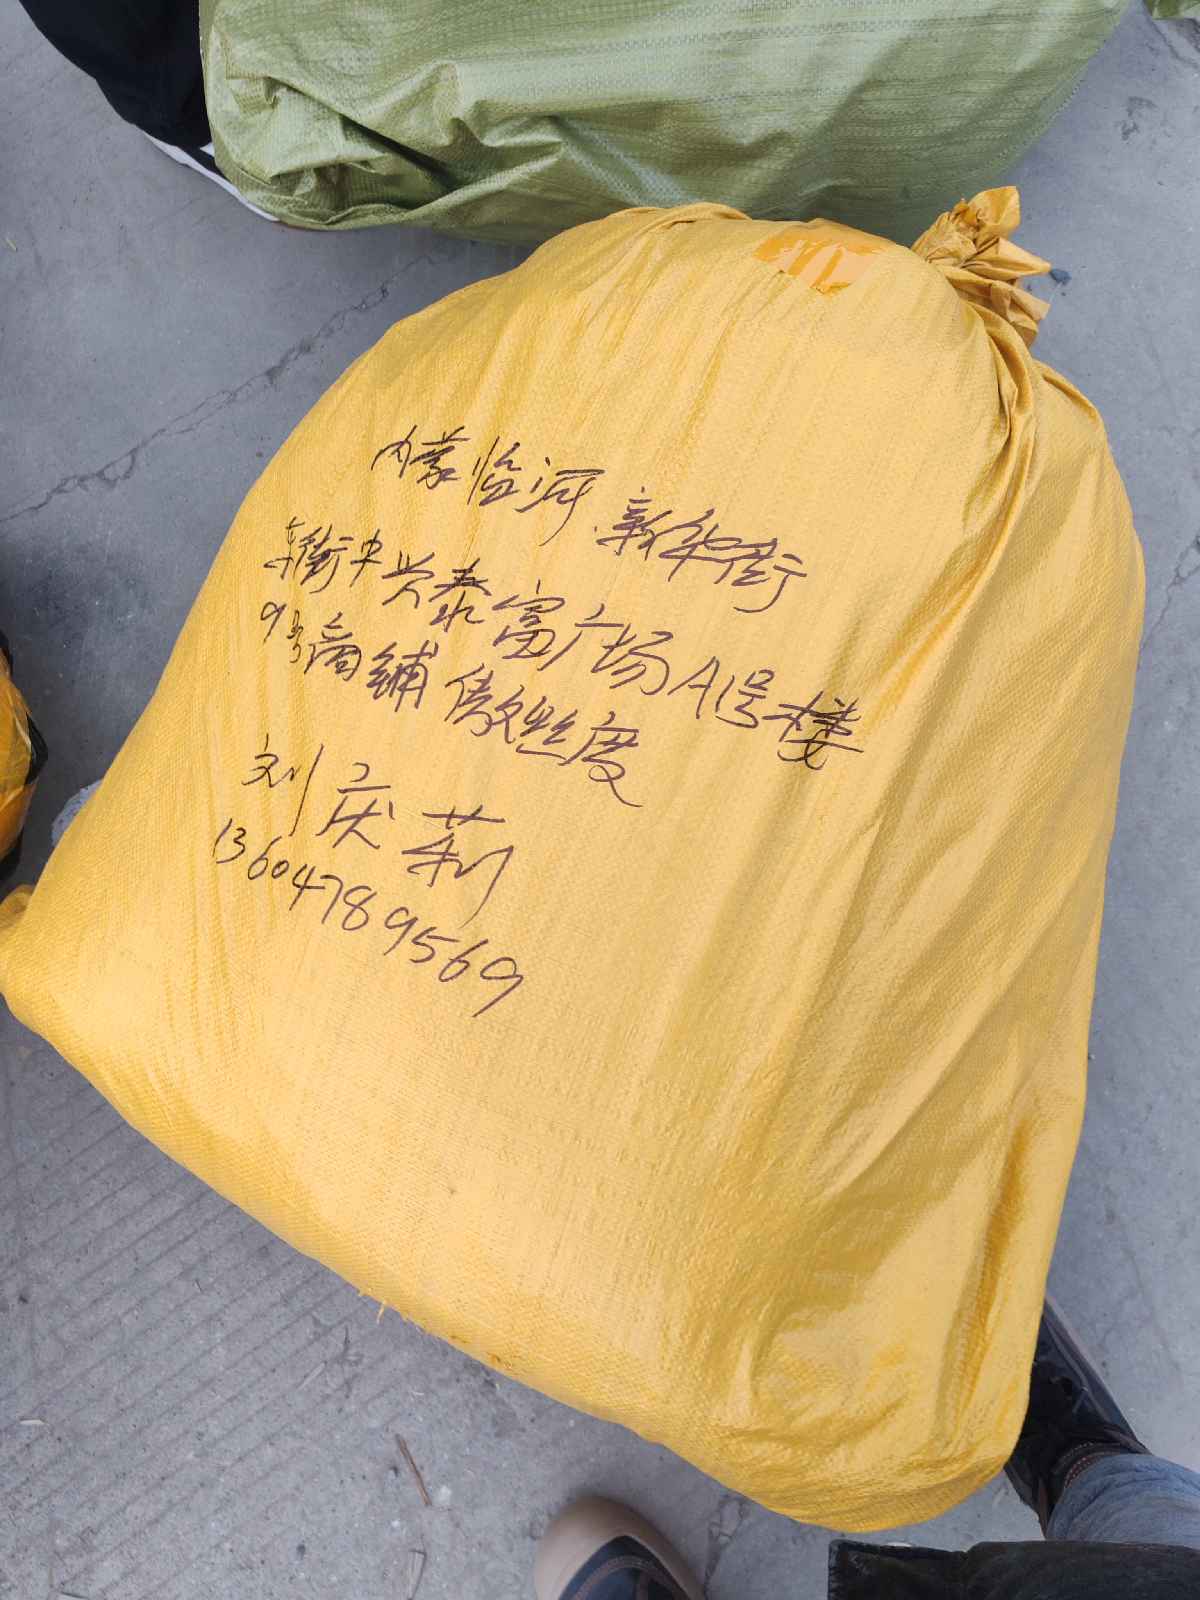 内蒙临河新华街
东街中兴泰富广场A1号楼
9号商铺傲丝度
刘庆莉
13604789569